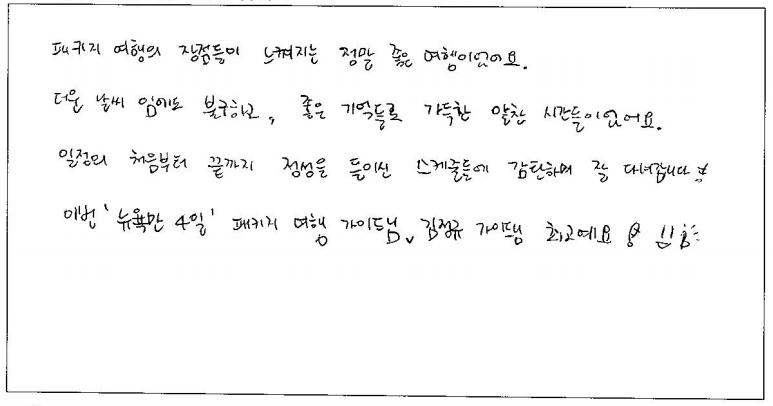 패키지 여행의 장점들이 느껴지는 정말 좋은 여행이었어요.
더운 날씨 임에도 불구하고, 좋은 기억들로 가득한 알찬 시간들이었어요.
일정의 처음부터 끝까지 정성을 들이신 스케줄들에 감탄하며 잘 다녀갑니다
이번 '뉴욕만 4일' 패키지 여행 가이드님, 김정규 가이드님 최고예요 !!